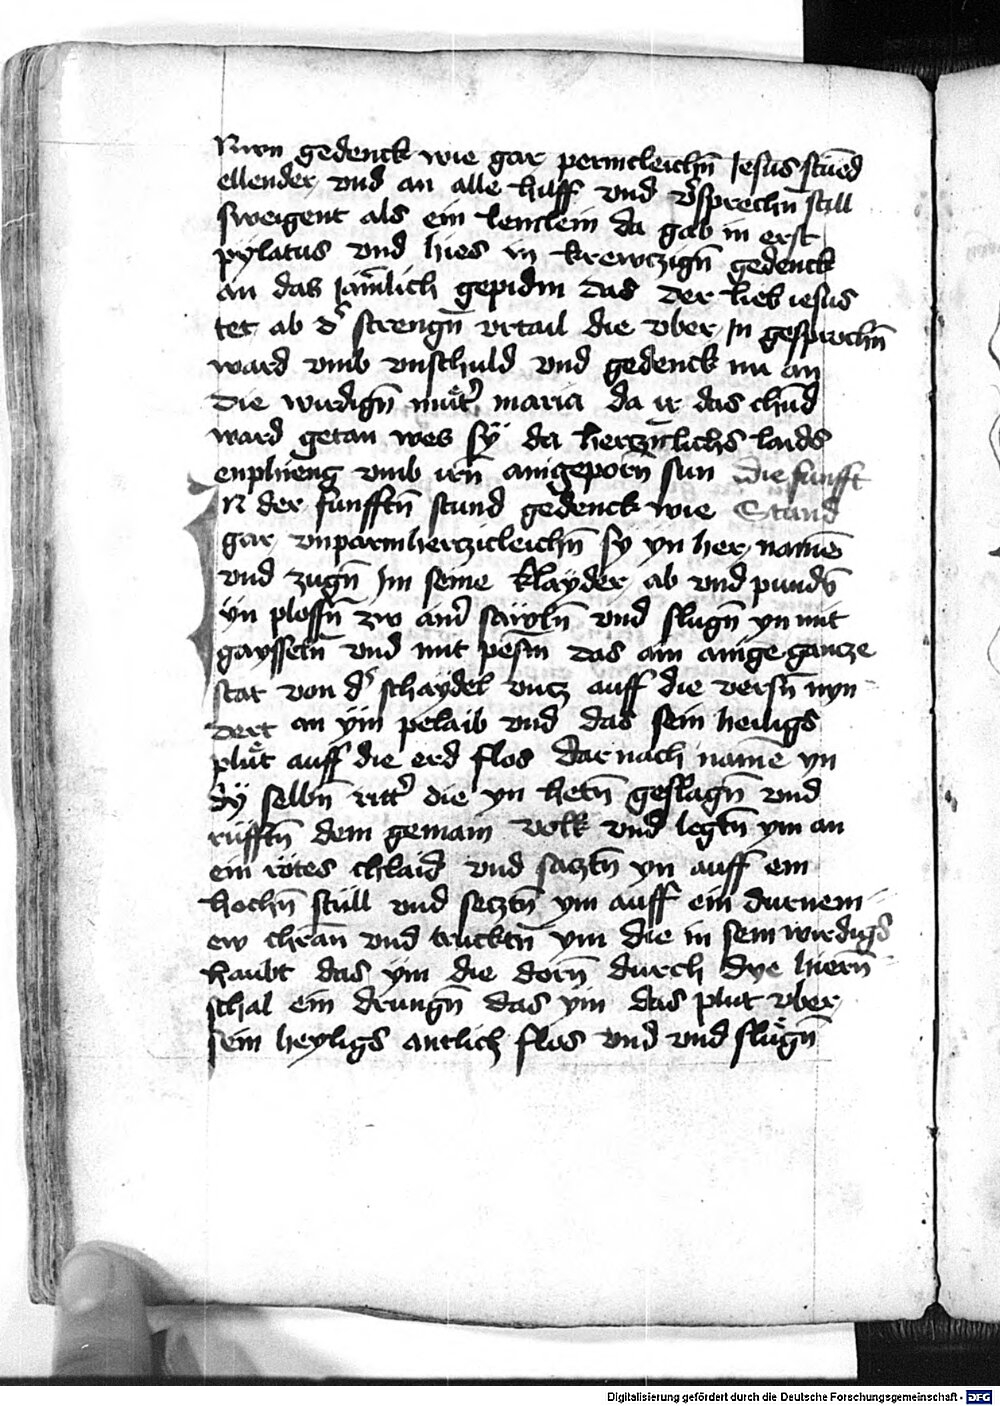 Nun gedenck wie gar permcleichn̄ Jesus stūed
ellender vnd an alle hilff vnd v̓sprechn̄ still
sweigent als ein lemlein da gab in erst
pylatus vnd hies in krewczign̄ gedenck
an das Jām̄lich gepidm das der lieb iesus
tet ab d̓ strengn̄ vrtail die vber Jn gesprochn̄
ward vmb vnschuld vnd gedenck nu an
die wirdign̄ muͤt̓ maria da ir das chūd
ward getan wes sÿ da herczn̄lichs laids
enphieng vmb irn̄ aingeporn̄ sun die funfft
Stund
JN der funfftn̄ stund gedenck wie
gar vnparmherczicleichn̄ sy yn her namē
vnd zugn̄ Jm seine klayder ab vnd pundn̄
ÿn plossn̄ zw ain̓ säwln̄ vnd slugn̄ yn mit
gaysseln̄ vnd mit pesm̄ das ain ainige gancze
stat von d̓ schaydel vncz auff die versn̄ nyn
dert an ÿm pelaib vnd das sein heiligs
pluͤt auff die erd flos Dar nach namē yn
dÿ selbn̄ ritt̓ die yn hetn̄ geslagn̄ vnd
rüfftn̄ dem gemain volk vnd legtn̄ ym an
ein rötes chlaid vnd sacztn̄ yn auff ein
hochn̄ stüll vnd secztn̄ ym auff ein durnein
ew chran vnd trucktn̄ ym die in sein wirdigs
haubt das ÿm die dorn̄ durch dye hiern̄
schal ein drungn̄ das ym das plut vber
sein heyligs antlicz flos vnd vnd sluͤgn̄
Digitalisierung gefördert durch die Deutsche Forschungsgemeinschaft - DFG